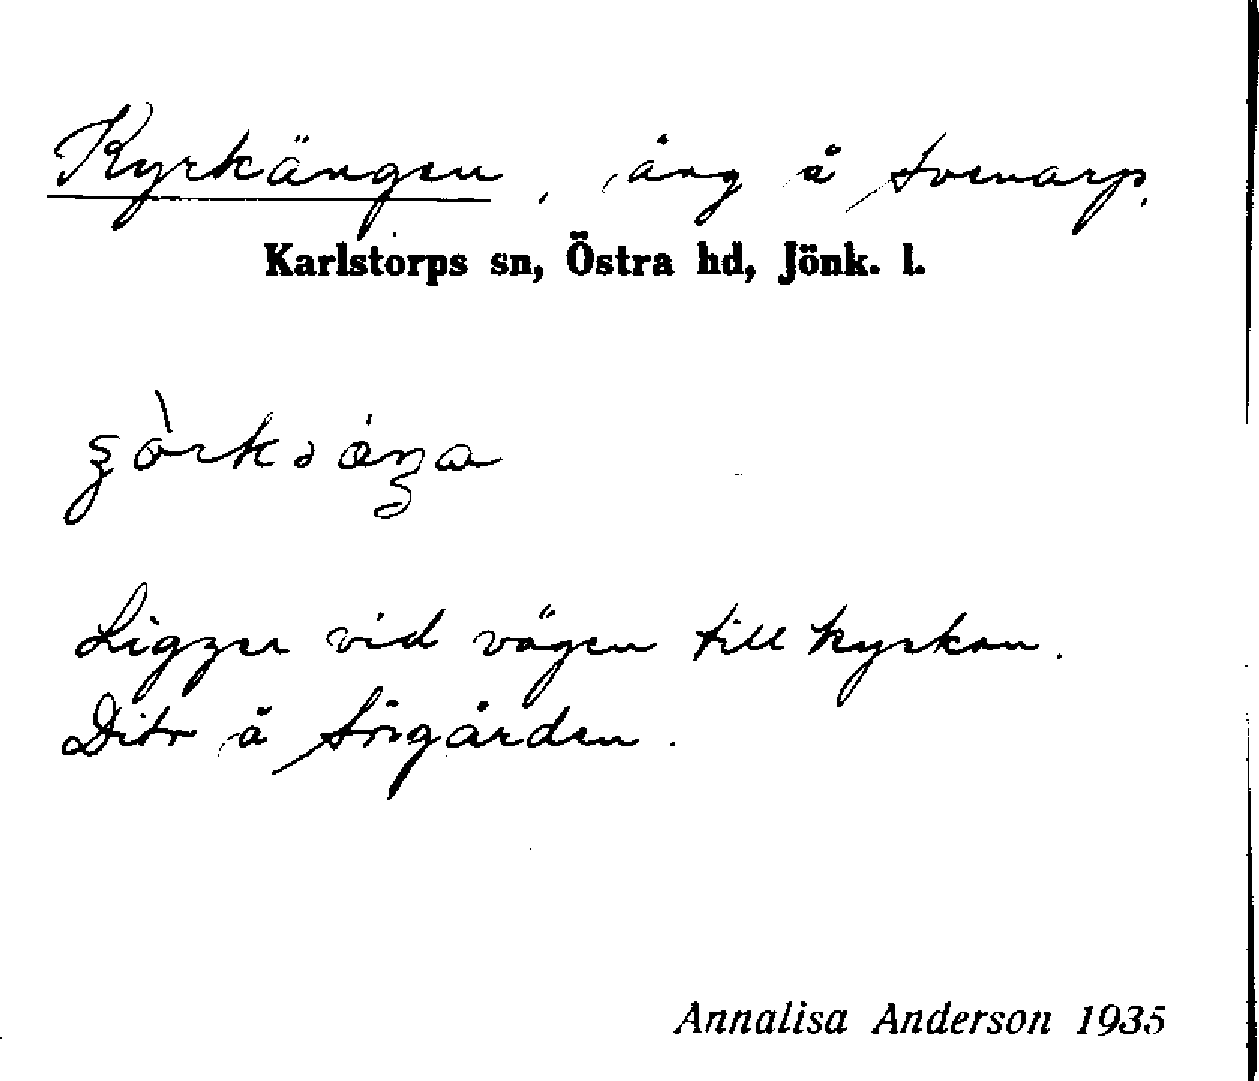 Kyrkängen, äng å Svenarp.
Karlstorps sn, Östra hd, Jönk. l.
Ligger vid vägen till kyrkan.
Dito å Sörgården.
Annalisa Anderson 1935